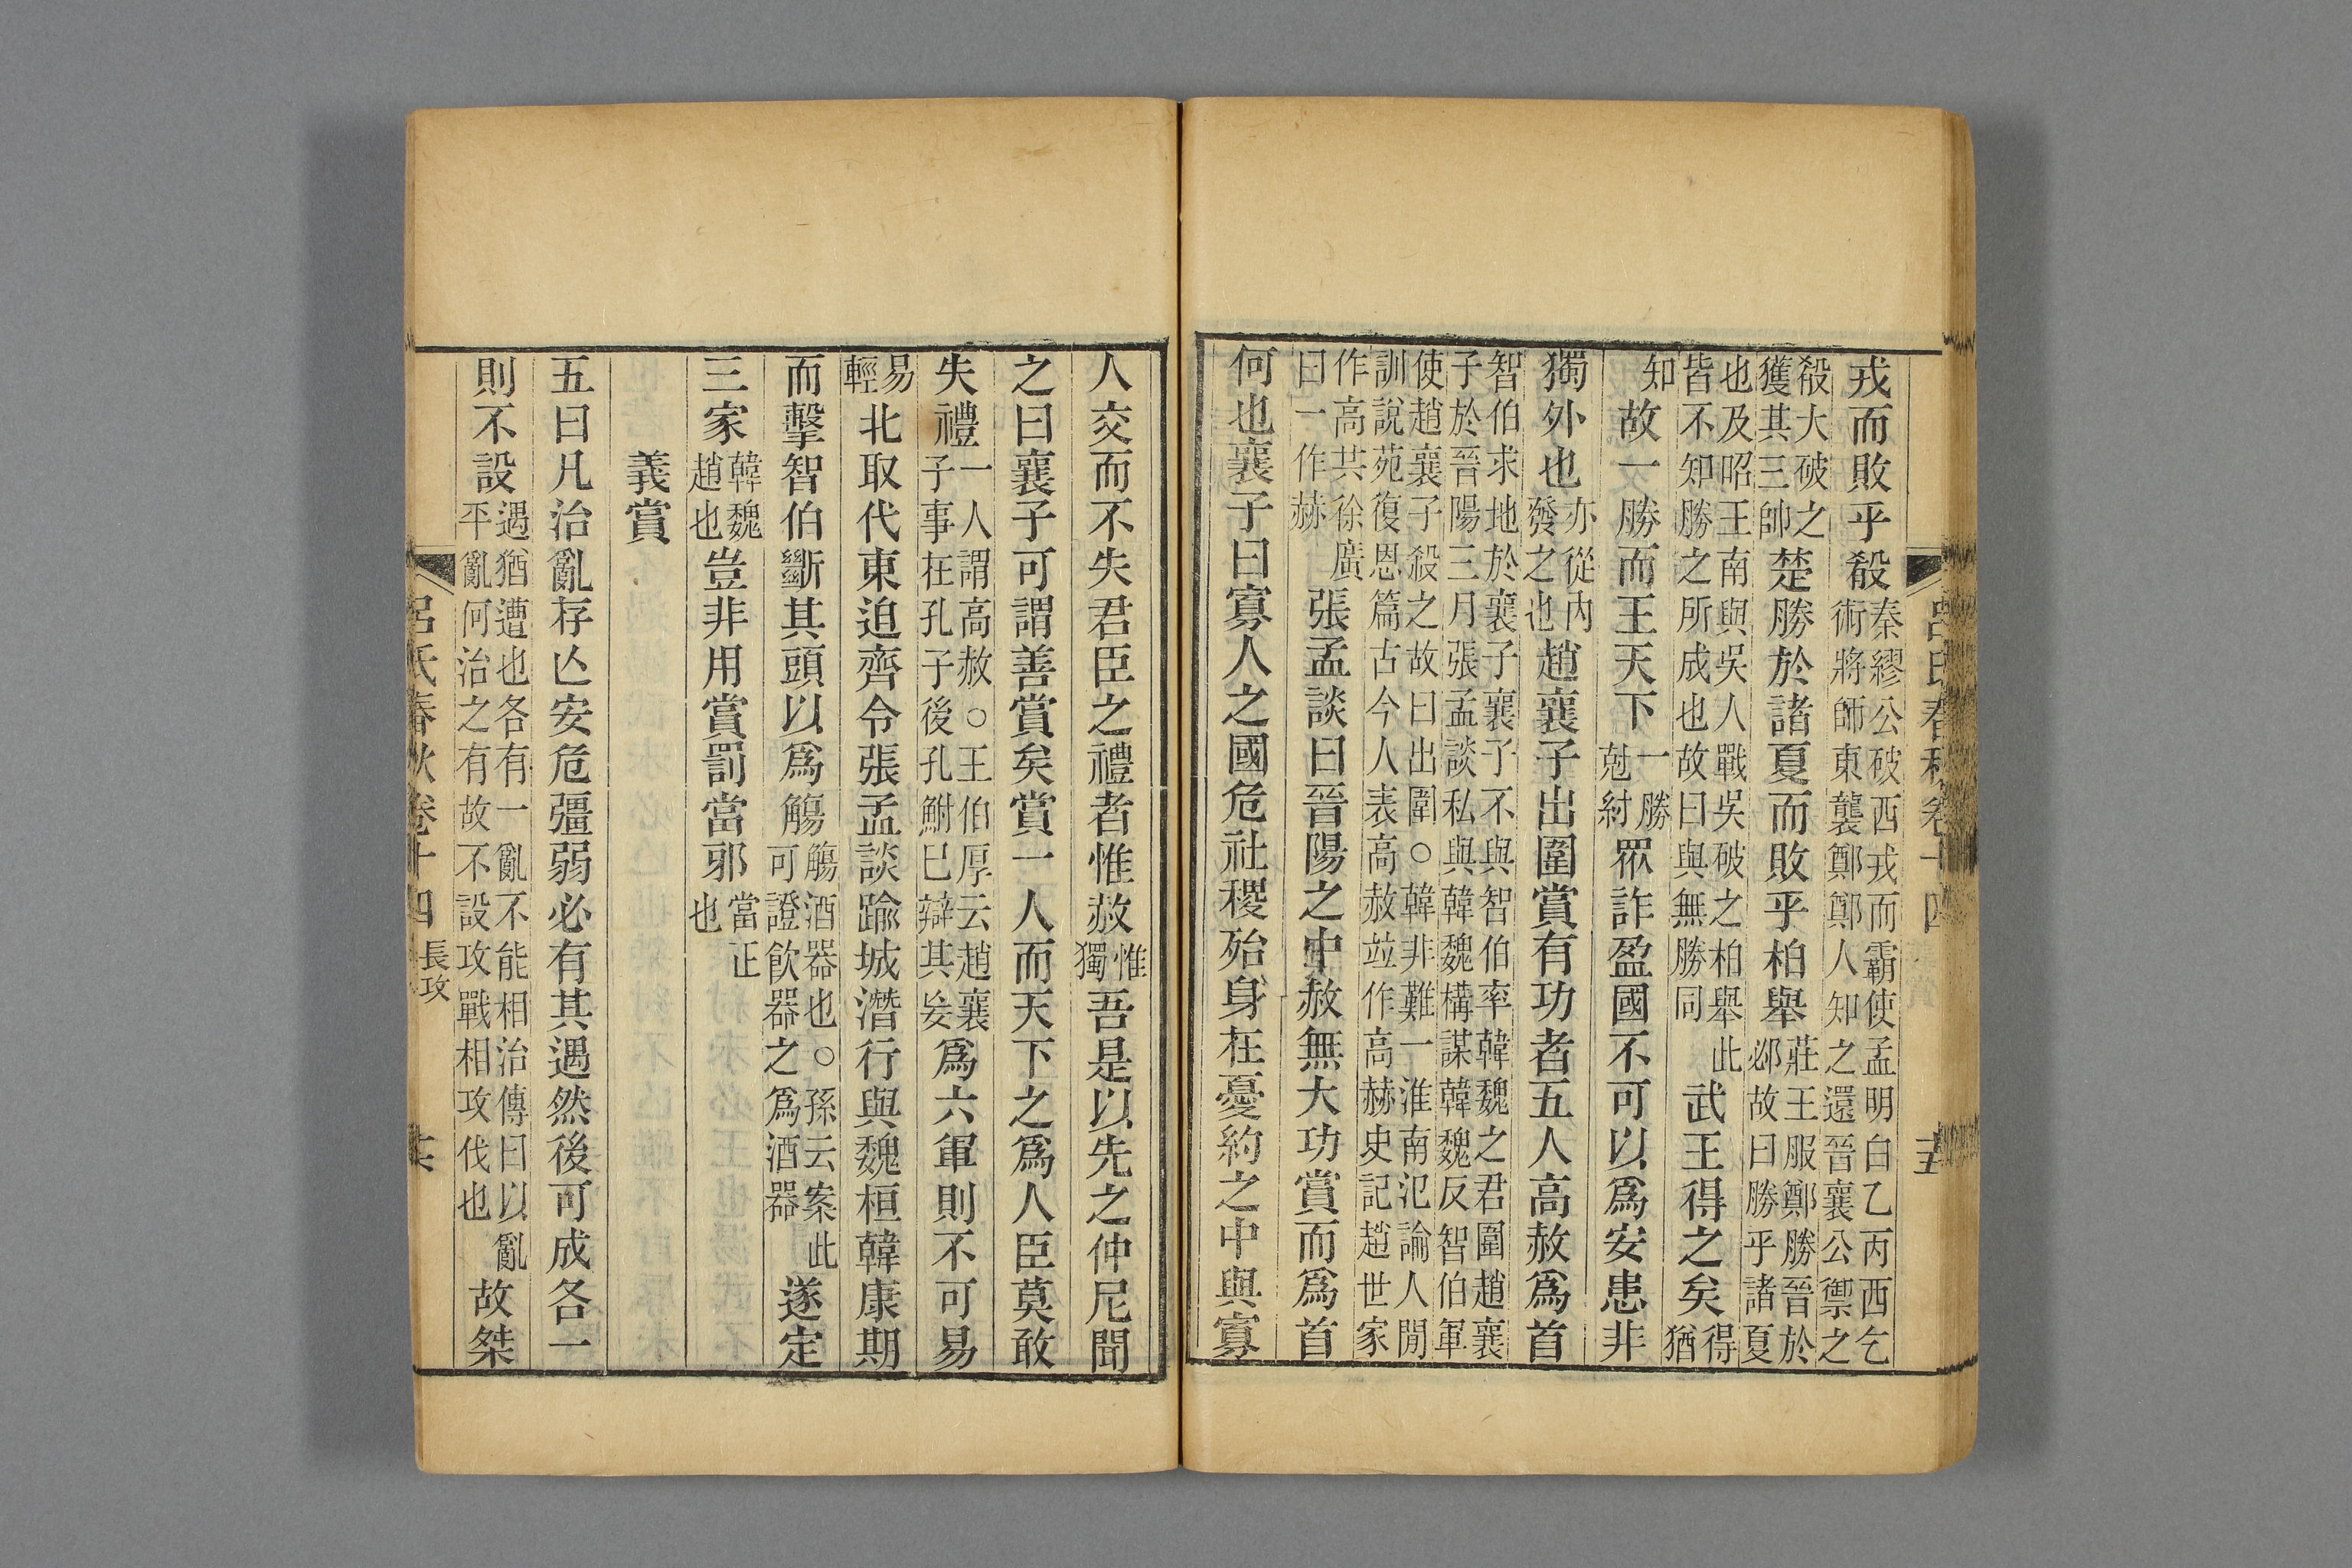 呂氏春秋卷十四 十五
戎而敗乎殽秦繆公破西戎而霸使孟明白乙丙西乞術將師東襲鄭鄭人知之還晉襄公禦之
殽大破之獲其三帥楚勝於諸夏而敗乎柏舉莊王服鄭勝晉於邲故曰勝乎諸夏
也及昭王南與吳人戰吳破之柏舉此皆不知勝之所成也故曰與無勝同武王得之矣得猶
知故一勝而王天下一勝剋紂眾詐盈國不可以爲安患非
獨外也亦從內發之也趙襄子出圍賞有功者五人高赦爲首
智伯求地於襄子襄子不與智伯率韓魏之君圍趙襄子於晉陽三月張孟談私與韓魏構謀韓魏反智伯軍
使趙襄子殺之故曰出圍○韓非難一淮南氾論人閒訓說苑復恩篇古今人表高赦竝作高赫史記趙世家
作高共徐廣曰一作赫張孟談曰晉陽之中赦無大功賞而爲首
何也襄子曰寡人之國危社稷殆身在憂約之中與寡
人交而不失君臣之禮者惟赦惟獨吾是以先之仲尼聞
之曰襄子可謂善賞矣賞一人而天下之爲人臣莫敢
失禮一人謂高赦○王伯厚云趙襄子事在孔子後孔鮒已辯其妄爲六軍則不可易
易輕北取代東迫齊令張孟談踰城潛行與魏桓韓康期
而擊智伯斷其頭以爲觴觴酒器也○孫云案此可證飲器之爲酒器遂定
三家韓魏趙也豈非用賞罰當邪當正也
義賞
五曰凡治亂存亾安危彊弱必有其遇然後可成各一
則不設遇猶遭也各有一亂不能相治傳曰以亂平亂何治之有故不設攻戰相攻伐也故桀
呂氏春秋卷十四 長攻 十六